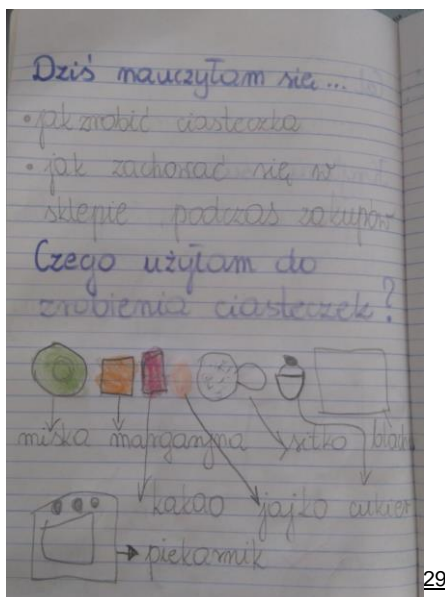 Dziś nauczyłam się...
• jak zrobić ciasteczka
• jak zachować się w
sklepie podczas zakupów
Czego użyłam do
zrobienia ciasteczek?
miska margaryna sitko blacha
kakao jajko cukier
piekarnik
29